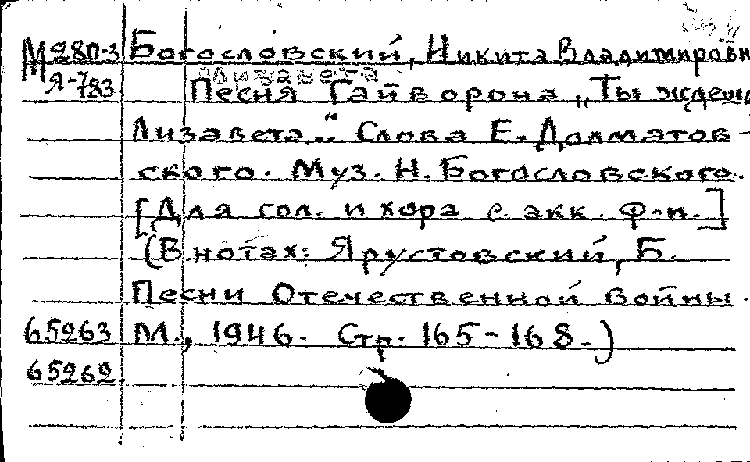 М280-3 Богословский, Никита Владимирови
Лизавета
Я-783 Песня Гайворона „Ты ждешь
Лизавета". Слова Е. Долматов-
ского. Муз. Н. Богословского.
[Для сол. и хора с акк. ф-п.]
(В нотах: Ярустовский, Б.
Песни Отечественной войны.
65263 М., 1946. Стр. 165-168.)
65262